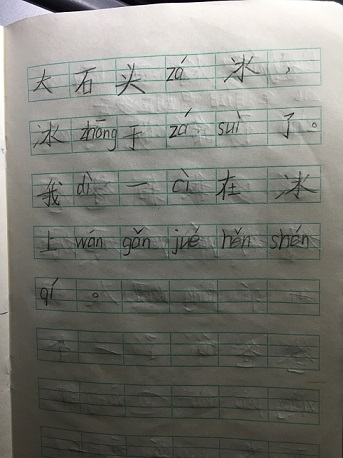 大石头zá冰，
冰zhōng于zá suì了。
我dì一cì在冰
上wán gǎn jué hěn shén
qí。